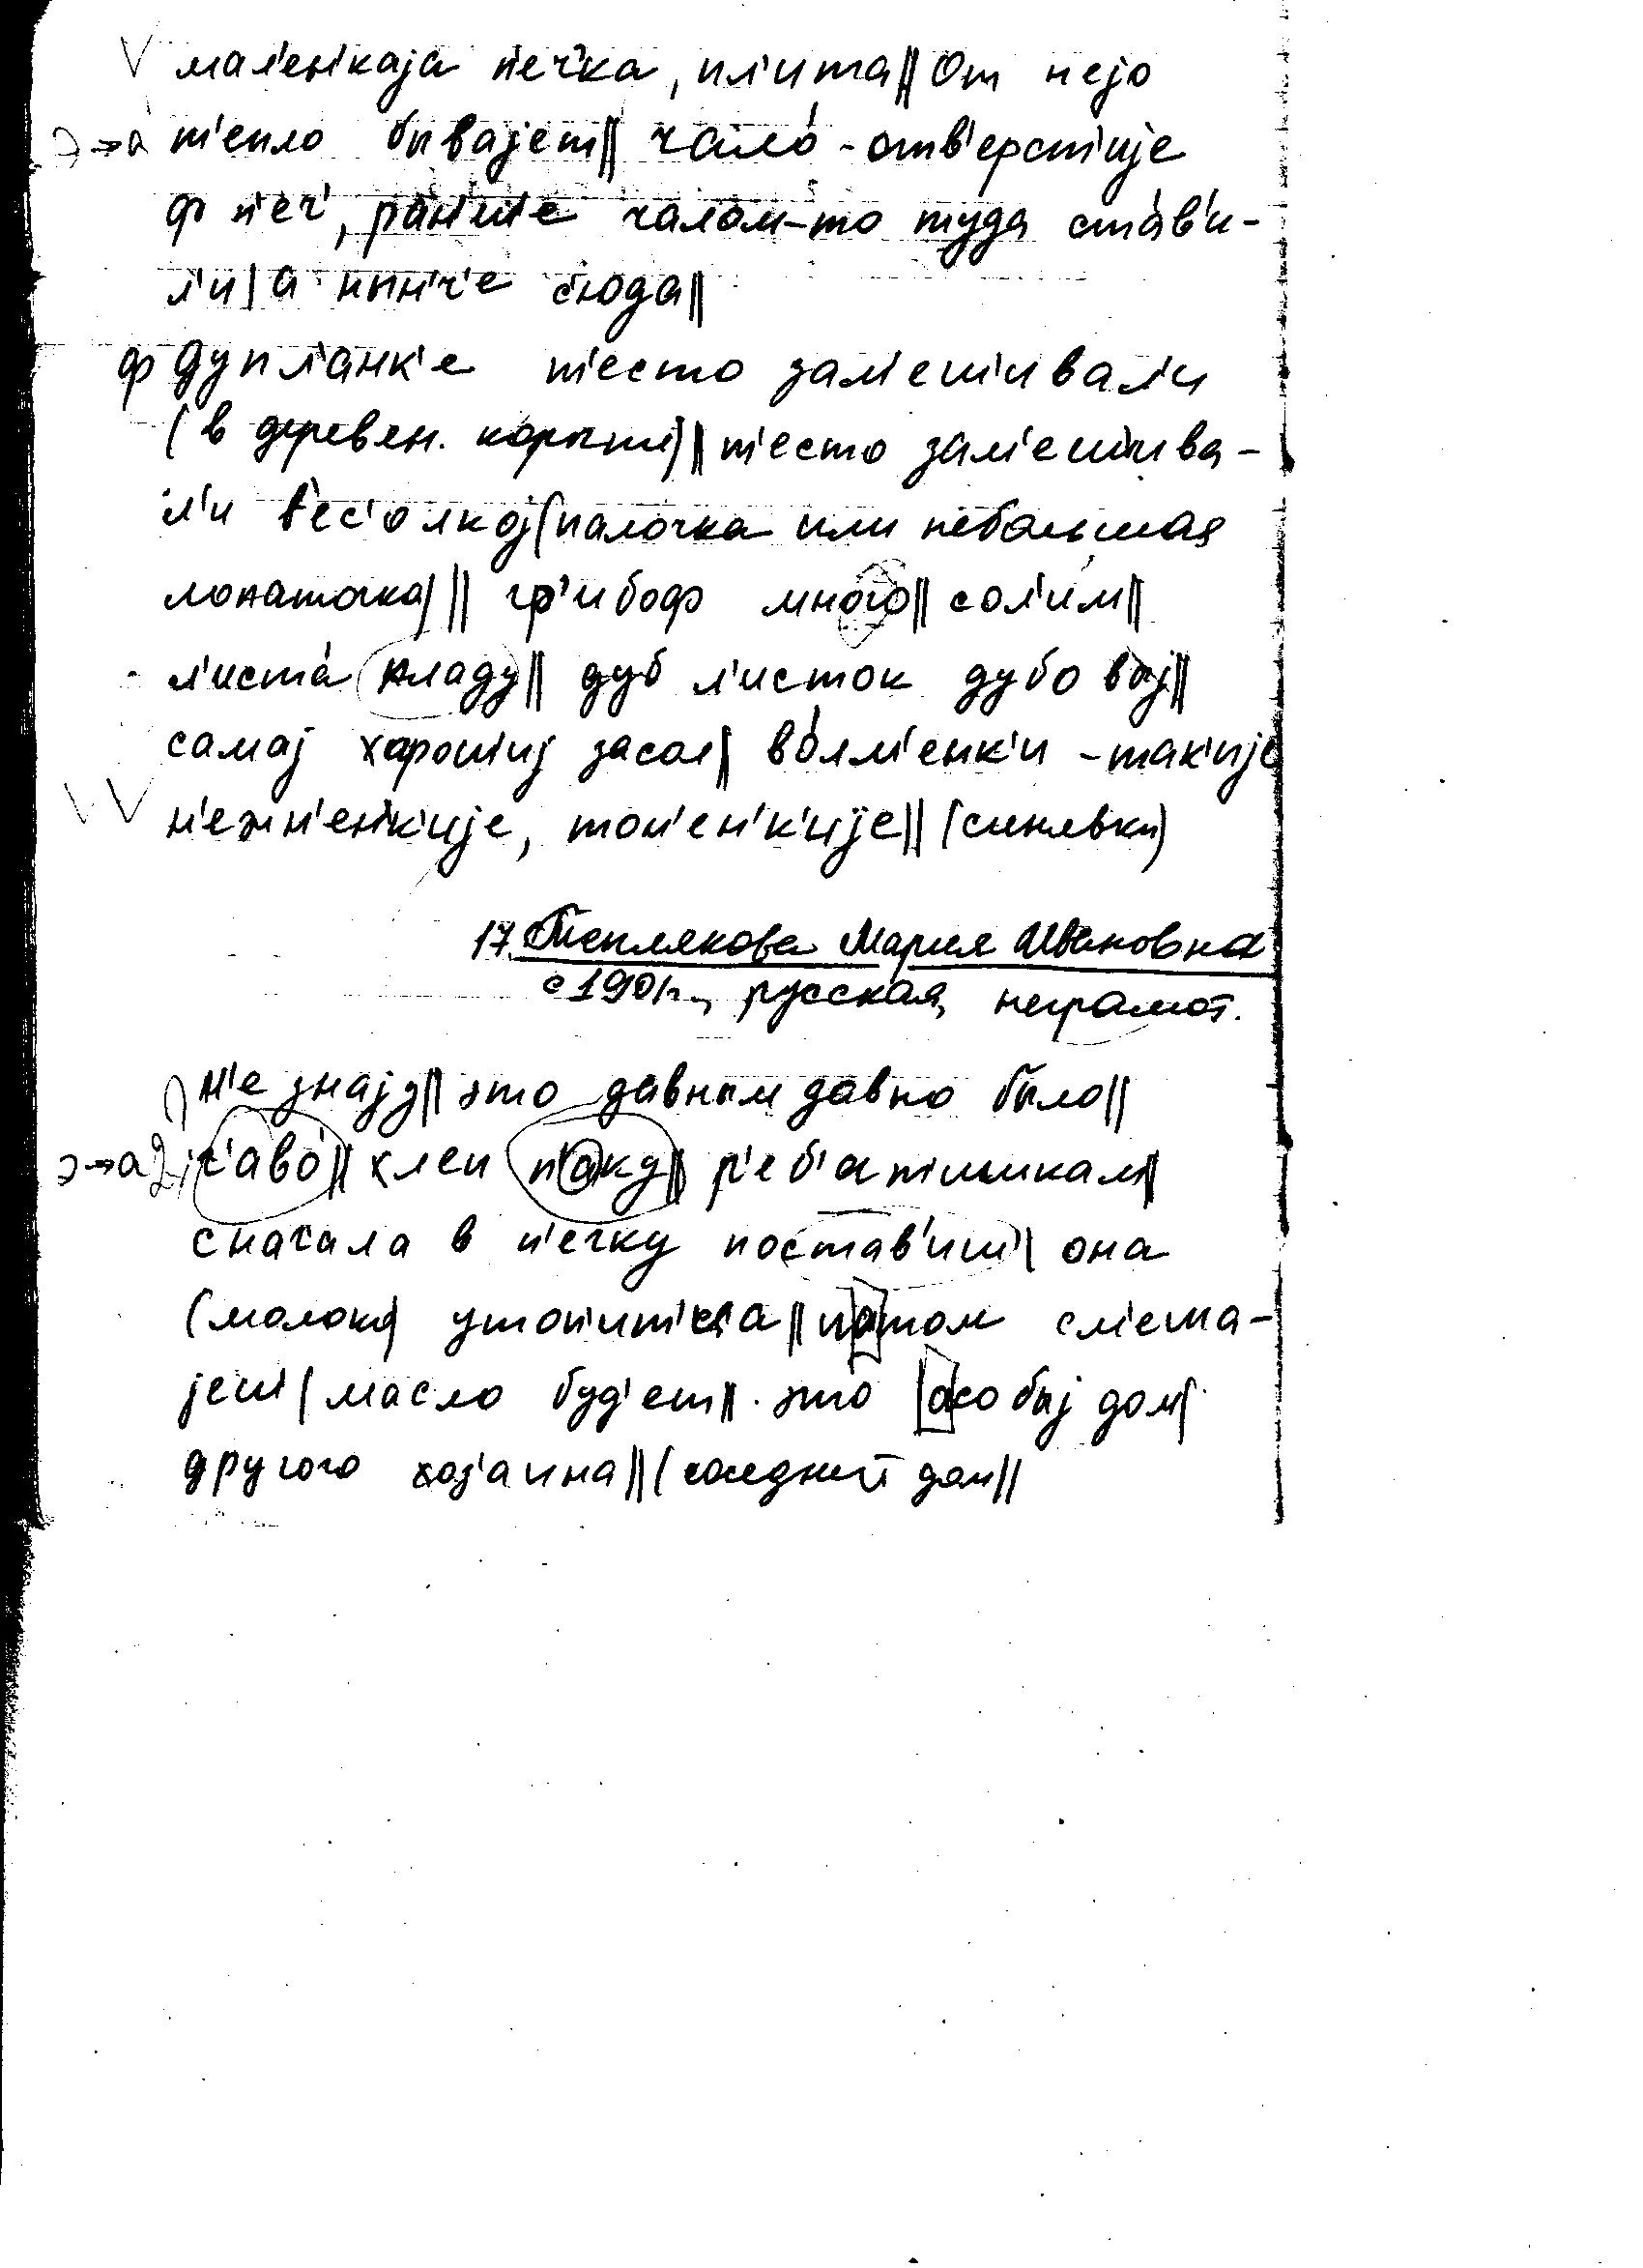 V мал'ен'каја п'ечка, пл'ита || От нејо
э→а т'епло бывајет || чало́ - отв'ерст'ије
ф п'еч', ран'ше чалом-то туда ста́в'и-
л'и | а нын'ч'е с'юда ||
ф дупл'анк'е т'есто зам'ешивал'и
(в деревен. корыте) || т'есто зам'ешива-
л'и в'ес'олкој (палочка или небольшая
лопаточка) || гр'ибоф много || сол'им ||
л'иста́ кладу || дуб л'исток дубовај ||
самај хорошиј засол || во́лм'енк'и - так'ије
VV н'ежн'ен'к'ије, тон'ен'к'ије || (синявки)
17. Теплякова Мария Ивановна
с 1901 г., русская, неграмот.
1) н'е знају || это давным давно было ||
э→а 2) с'аво́ || хлеп п'аку || р'еб'ат'ишкам ||
сначала в п'ечку постав'иш | она
(молоко) утоп'итца || патом см'еша-
јеш | масло буд'ет || это асобыј дом |
другого хоз'аина || (соседний дом ||